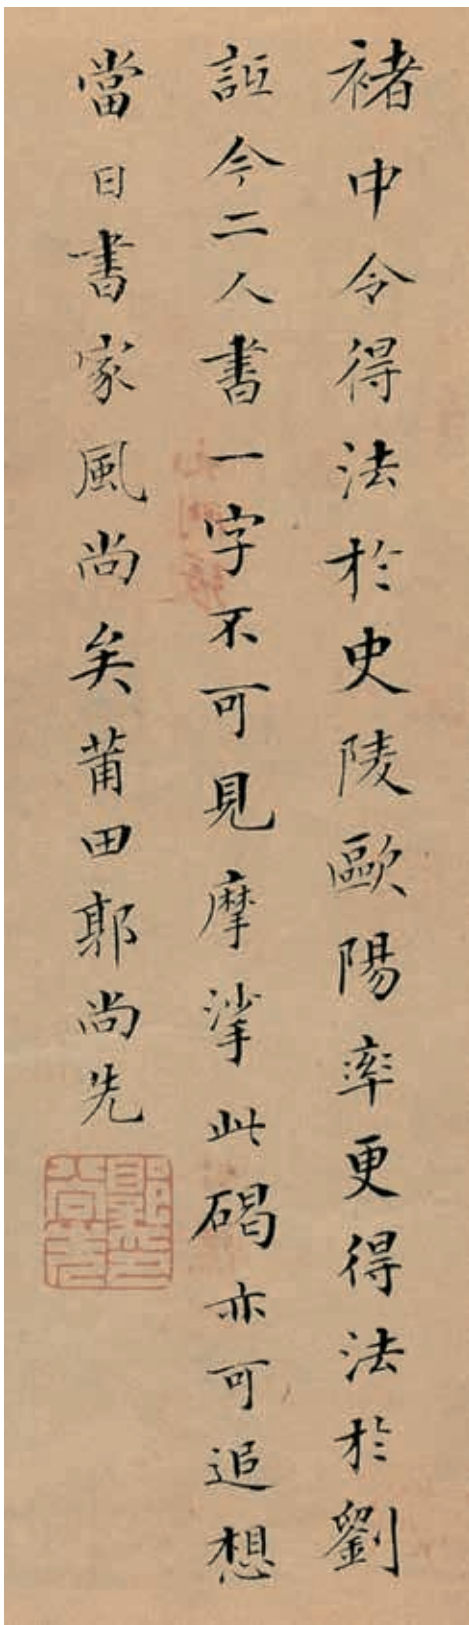 褚中令得法於史陵歐陽率更得法於劉
詎今二人書一字不可見摩挲此碣亦可追想
當日書家風尚矣莆田郭尚先